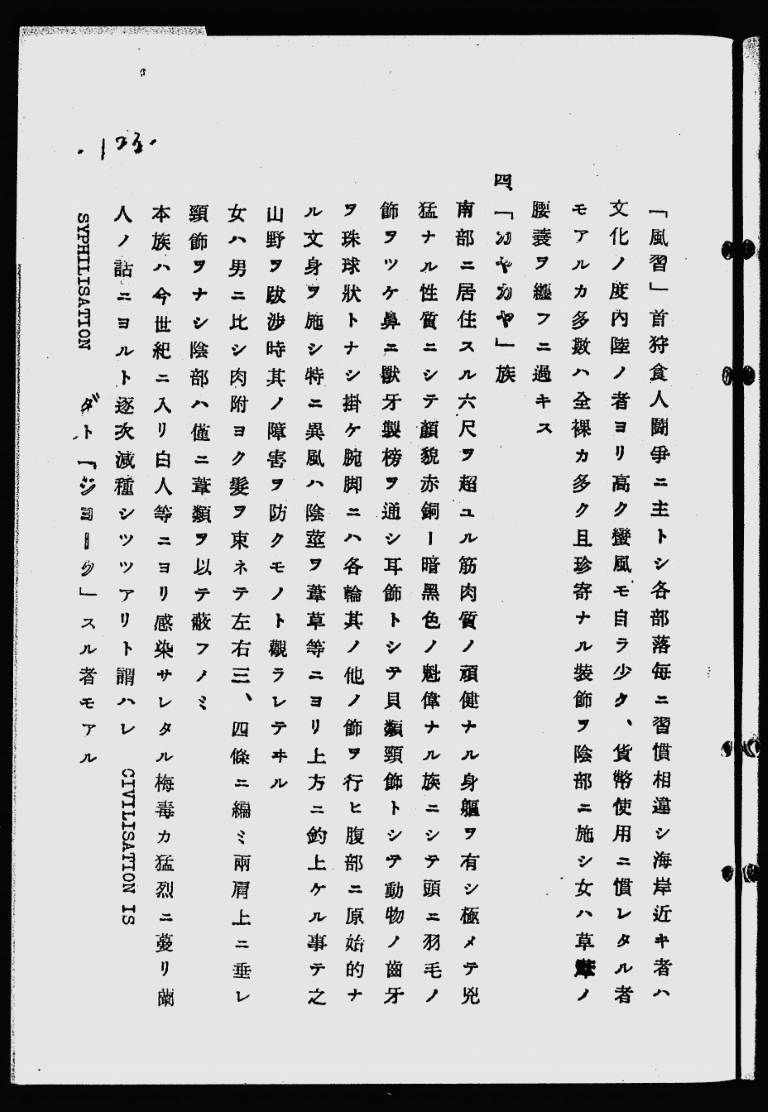 「風習」首狩食人鬪爭ニ主トシ各部落每ニ習慣相違シ海岸近キ者ハ
文化ノ度內陸ノ者ヨリ高ク蠻風モ自ラ少ク、貨幣使用ニ慣レタル者
モアルカ多數ハ全裸カ多ク且珍寄ナル裝飾ヲ陰部ニ施シ女ハ草葦ノ
腰蓑ヲ纒フニ過キス
四、「カヤカヤ」族
南部ニ居住スル六尺ヲ超ユル筋肉質ノ頑健ナル身軀ヲ有シ極メテ兇
猛ナル性質ニシテ顏貌赤銅ー暗黑色ノ魁偉ナル族ニシテ頭ニ羽毛ノ
飾ヲツケ鼻ニ獸牙製榜ヲ通シ耳飾トシテ貝類頸飾トシテ動物ノ齒牙
ヲ珠球狀トナシ掛ケ腕脚ニハ各輪其ノ他ノ飾ヲ行ヒ腹部ニ原始的ナ
ル文身ヲ施シ特ニ異風ハ陰莖ヲ葦草等ニヨリ上方ニ釣上ケル事テ之
山野ヲ跋涉時其ノ障害ヲ防クモノト觀ラレテヰル
女ハ男ニ比シ肉附ヨク髮ヲ束ネテ左右三、四條ニ編ミ兩肩上ニ垂レ
頸飾ヲナシ陰部ハ僅ニ葦類ヲ以テ蔽フノミ
本族ハ今世紀ニ入リ白人等ニヨリ感染サレタル梅毒カ猛烈ニ蔓リ蘭
人ノ話ニヨルト逐次減種シツツアリト謂ハレ CIVILISATION IS
SYPHILISATION ダト「ジヨーク」スル者モアル